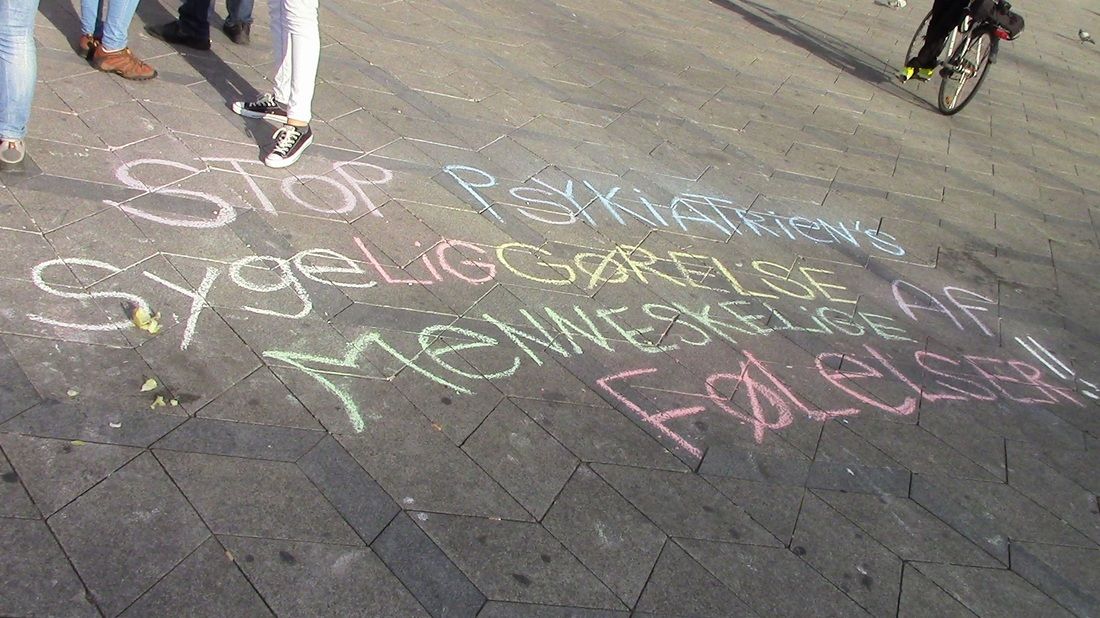 STOP PSYKiATRiEN'S
SygeLiGGØRELSE AF
MeNNESKELiGE
FØLELSER!!